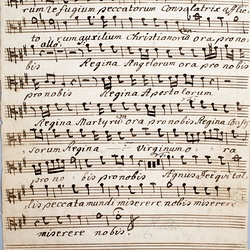 rum refugium peccatorum Consolatrix afflic
to rum auxilium Christianorum ora pro no
bis Regina Angelorum ora pro no
pro nobis Regina Apostolorum
Regina Martyrum ora pro nobis Regina
sorum Regina Virginum o ra
pro no bis pro nobis Agnus Dei qui tol
lis peccata mundi miserere nobis miserere
miserere nobis